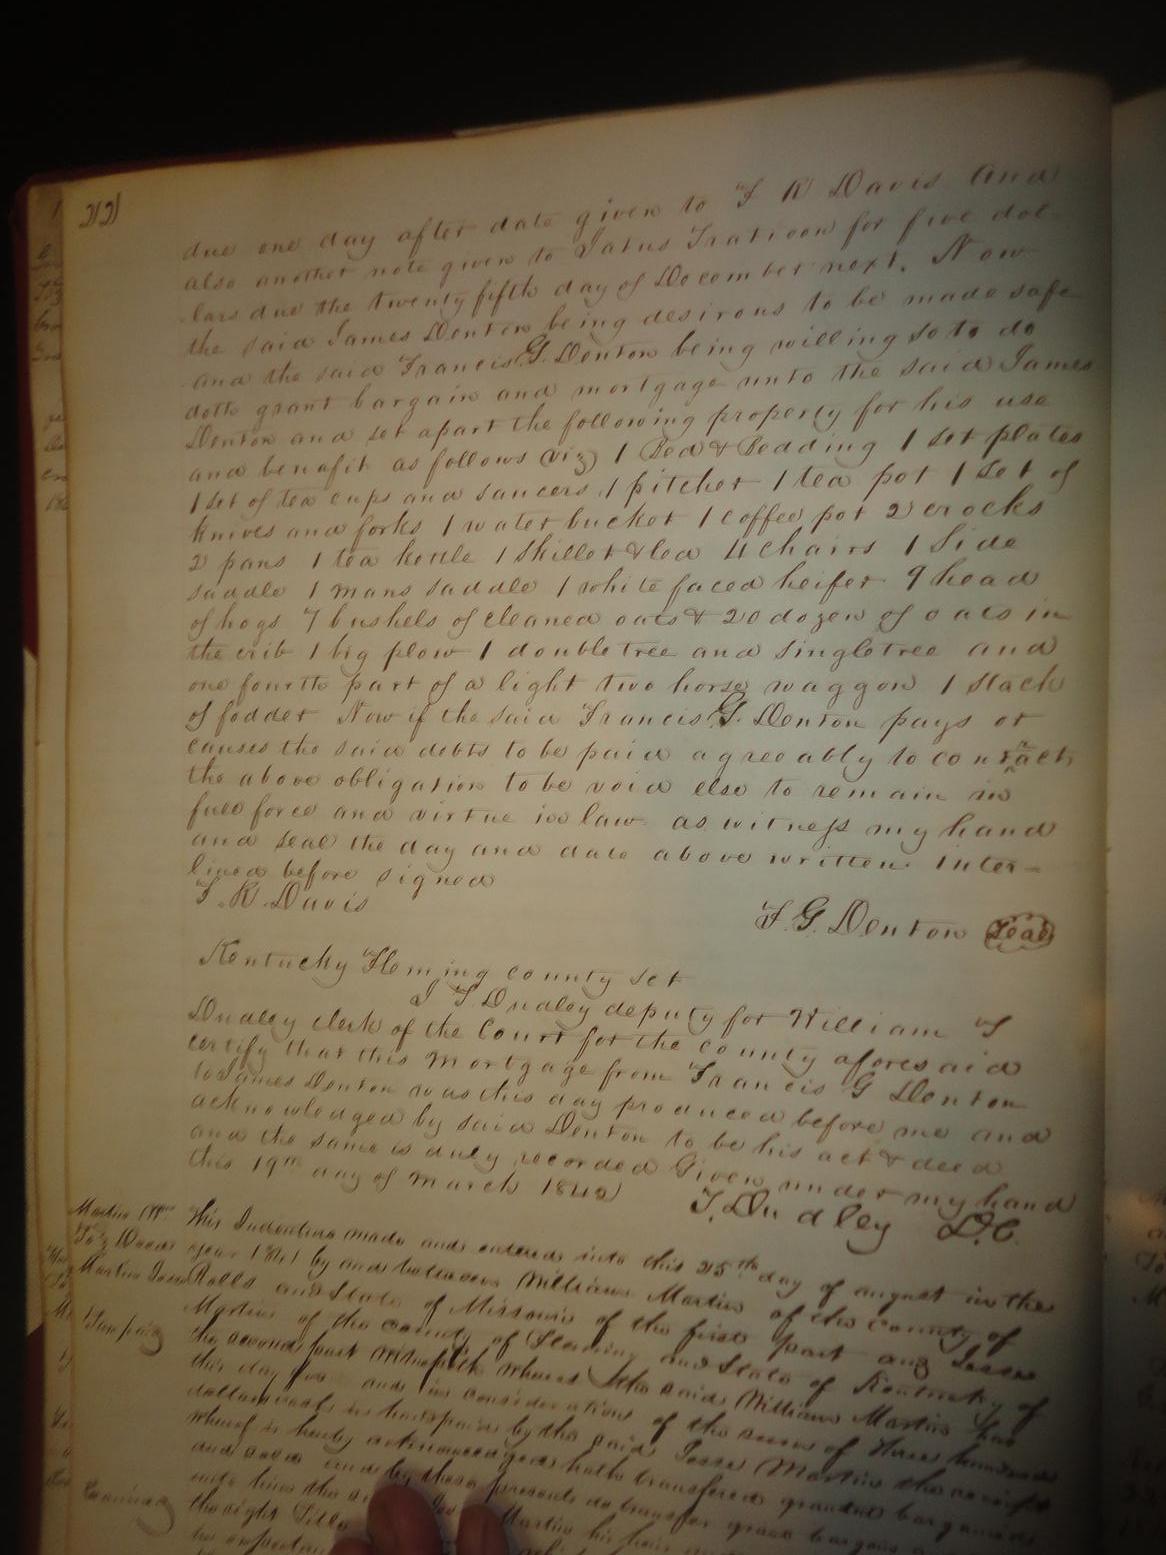 due one day after date given to T R Davis and
also another note given to for five dol-
lars due the twenty fifth day of December next. Now
the said James Denton being desirous to be made safe
and the said Francis G. Denton being willing so to do
doth grant bargain and mortgage unto the said James
Denton and set apart the following property for his use
and benafit as follows (viz) 1 Bed & Bedding 1 set plates
1 set of tea cups and saucers 1 pitcher 1 tea pot 1 set of
knives and forks 1 water bucket 1 coffee pot 2 crocks
2 pans 1 tea kettle 1 skillet & led 4 chairs 1 side
saddle 1 mans saddle 1 white faced heifer 9 head
of hogs 7 bushels of cleaned oats & 20 dozen of oats in
the crib 1 big plow 1 doubletree and singletree and
one fourth part of a light two horse waggon 1 stack
of fodder Now if the said Francis G. Denton pays or
causes the said debts to be paid agreeably to contract
the above obligation to be void else to remain in
full force and virtue in law as witness my hand
and seal the day and date above written inter-
lined before signed
T. R. Davis
F. G. Denton Seal
Kentucky Fleming county sct
I T Dudley deputy for William T
Dudley clerk of the Court for the county aforesaid
certify that this mortgage from Francis G Denton
to James Denton was this day produced before me and
acknowledged by said Denton to be his act & deed
and the same is duly recorded Given under my hand
this 19th day of March 1842
T. Dudley D.C.
Martin Wm
To } Deed
Martin Jesse
This Indenture made and entered into this 25th day of august in the
year 1841 by and between William Martin of the county of
Ralls and State of Missouri of the first part and Jesse
Martin of the county of Fleming and State of Kentucky of
the second part Witnesseth whereas the said William Martin has
this day for and in consideration of the sum of Three hundred
dollars cash in hand paid by the said Jesse Martin the receipt
whereof is hereby acknowledged hath transfered granted bargained
and by these presents do transfer grant bargain
unto him the Martin his heirs
the right Title